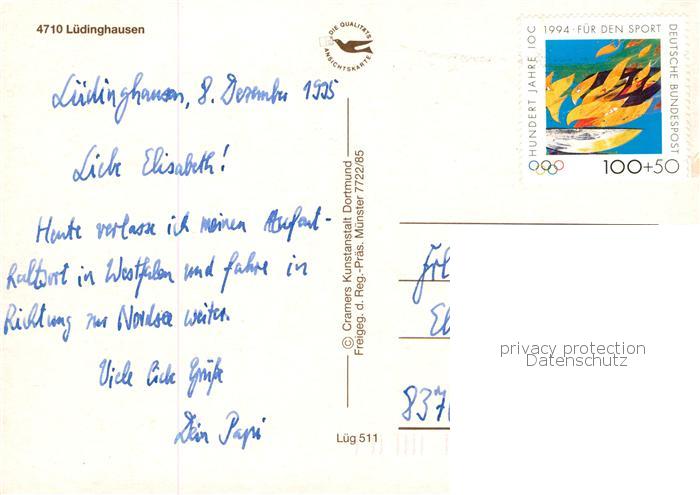 4710 Lüdinghausen
DIE QUALITÄTS
ANSICHTSKARTE
Lüdinghausen, 8. Dezember 1995
Liebe Elisabeth!
Heute verlasse ich meinen Aufent-
haltsort in Westfalen und fahre in
Richtung zur Nordsee weiter.
Viele liebe Grüße
Dein Papi
© Cramers Kunstanstalt Dortmund
Freigeg. d. Reg.-Präs. Münster 7722/85
Lüg 511
HUNDERT JAHRE IOC
1994 · FÜR DEN SPORT
DEUTSCHE BUNDESPOST
100+50
Frl
El
837
privacy protection
Datenschutz